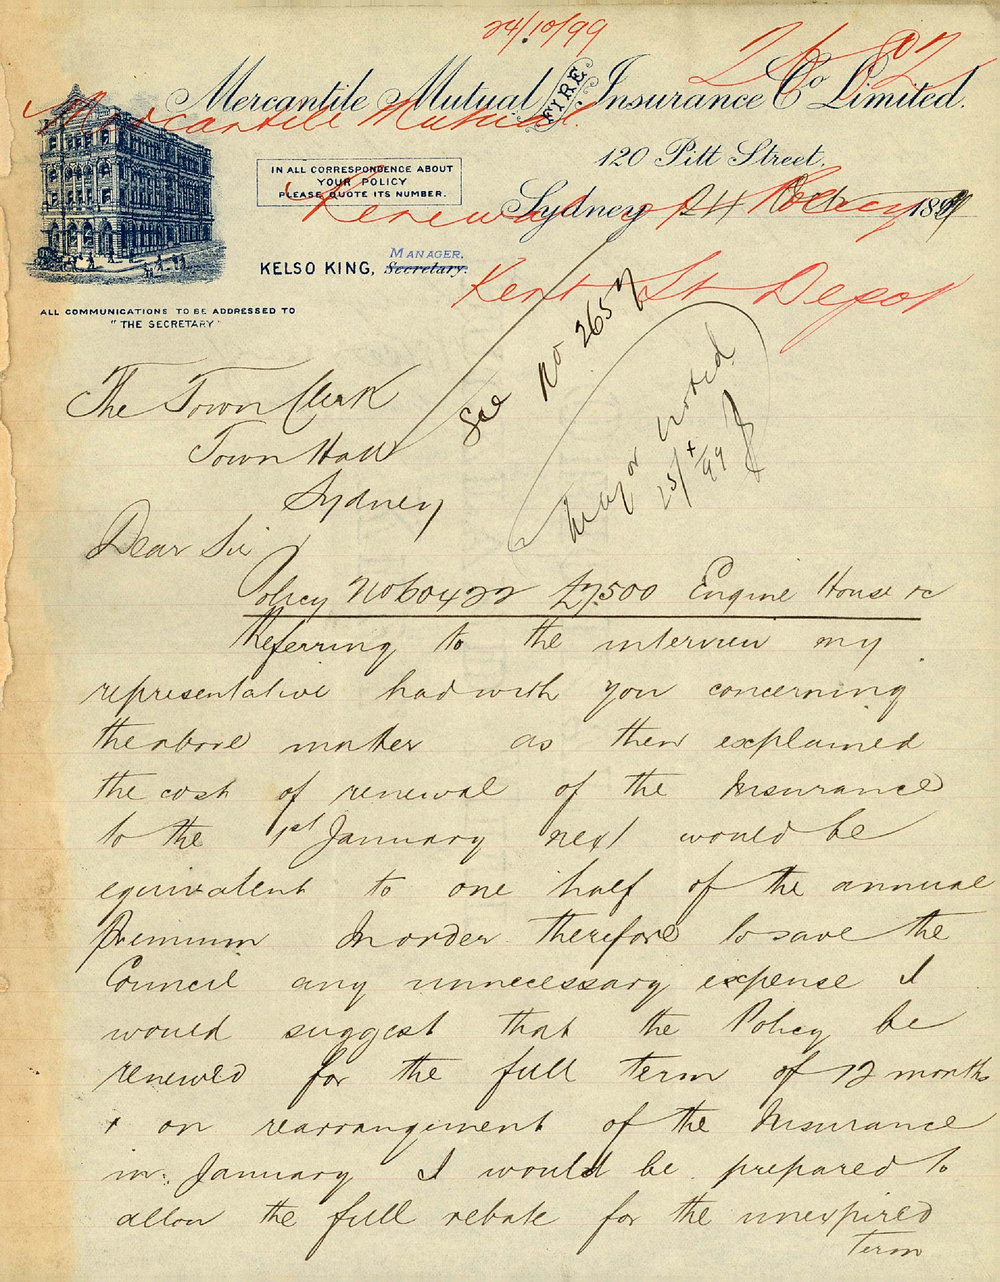 24/10/99
Mercantile Mutual FIRE Insurance Co Limited.
Mercantile Mutual.
120 Pitt Street,
IN ALL CORRESPONDENCE ABOUT
YOUR POLICY
PLEASE QUOTE ITS NUMBER.
Sydney 24 Oct 1899
Renewal of Policy
MANAGER,
KELSO KING, Secretary.
Kent St Depot
ALL COMMUNICATIONS TO BE ADDRESSED TO
"THE SECRETARY"
See No 2657
Mayor noted.
25/x/99
The Town Clerk
Town Hall
Sydney
Dear Sir
Policy No 60422 £7,500 Engine House &c
Referring to the interview my
representative had with you concerning
the above matter as then explained
the cost of renewal of the Insurance
to the 1st January next would be
equivalent to one half of the annual
Premium In order therefore to save the
Council any unnecessary expense I
would suggest that the Policy be
renewed for the full term of 12 months
& on rearrangement of the Insurance
in January I would be prepared to
allow the full rebate for the unexpired
term